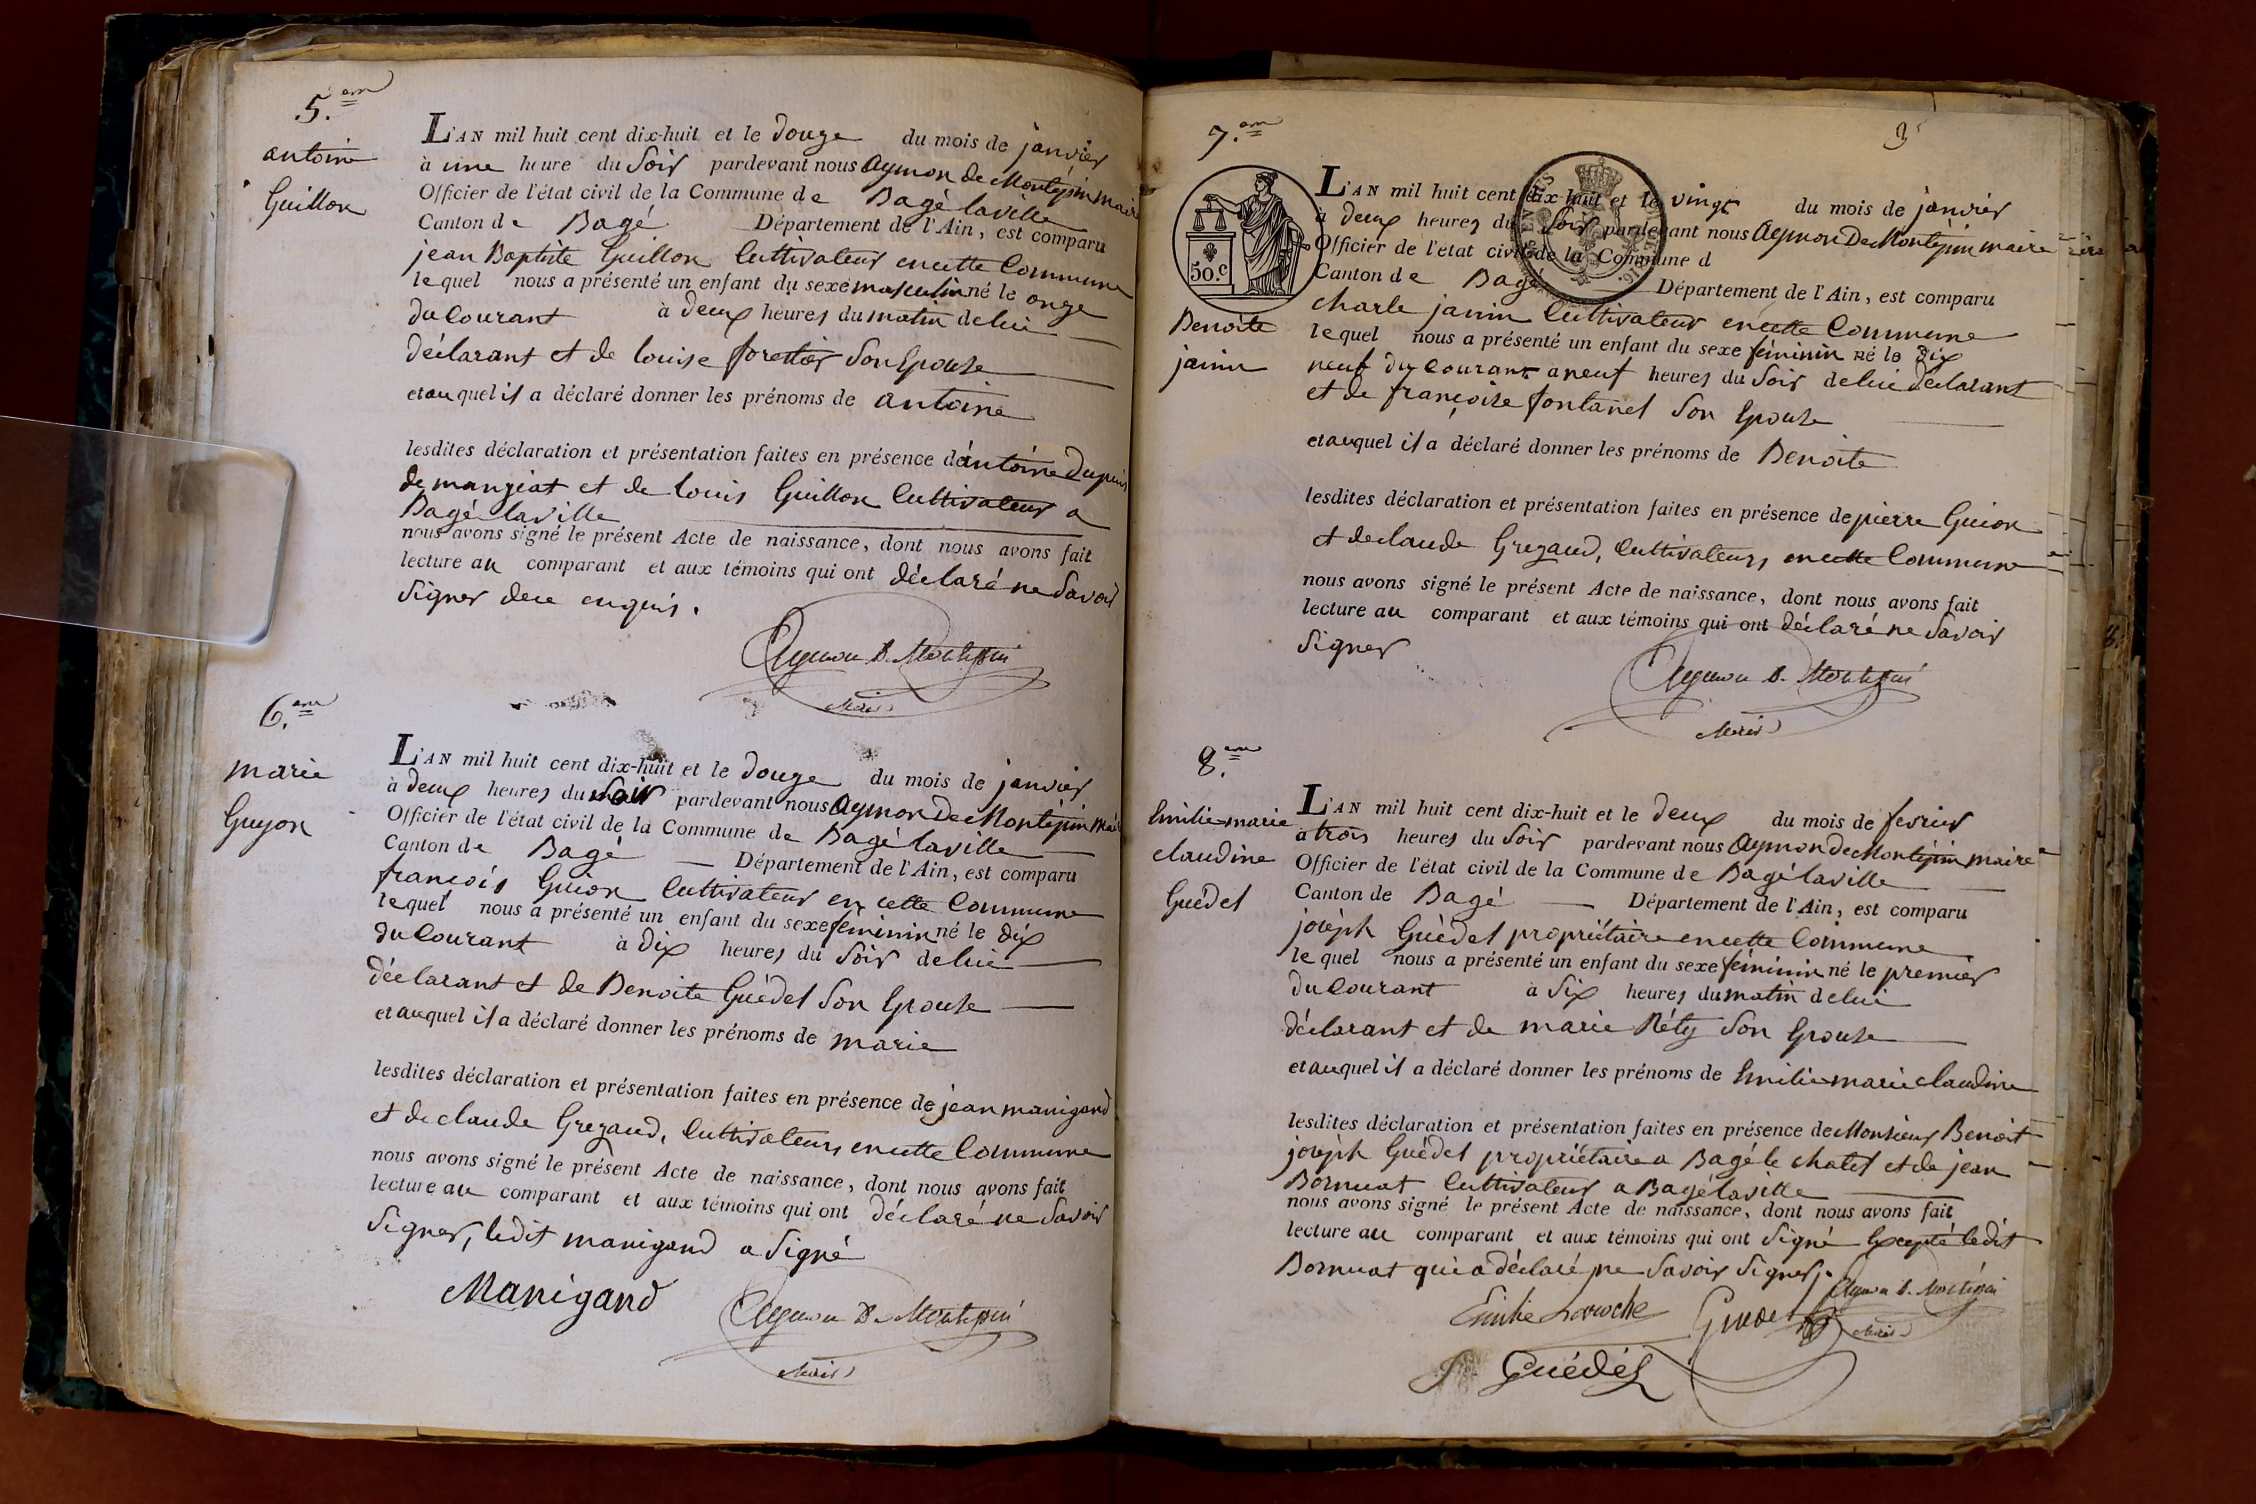 5.em
antoine
Guillon
L'AN mil huit cent dix-huit et le douze du mois de janvier
à une heure du Soir pardevant nous Aymon de Montépin maire
Officier de l'état civil de la Commune de Bagé laville
Canton de Bagé Département de l'Ain, est comparu
jean Baptiste Guillon Cultivateur en cette Commune
lequel nous a présenté un enfant du sexe masculin né le onze
du Courant à deux heures du matin de lui
déclarant et de louise forestier Son Epouse
et auquel il a déclaré donner les prénoms de antoine
lesdites déclaration et présentation faites en présence de antoine Dupuis
de manziat et de louis Guillon Cultivateur a
Bagé laville
nous avons signé le présent Acte de naissance, dont nous avons fait
lecture au comparant et aux témoins qui ont déclaré ne Savoir
Signer de ce enquis.
Aymon D. Montépin
Maire
6.em
marie
Guyon
L'AN mil huit cent dix-huit et le douze du mois de janvier
à deux heures du Soir pardevant nous Aymon De Montépin Maire
Officier de l'état civil de la Commune de Bagé laville
Canton de Bagé Département de l'Ain, est comparu
francois Guion Cultivateur en cette Commune
lequel nous a présenté un enfant du sexe féminin né le dix
du Courant à dix heures du Soir de lui
déclarant et de Benoite Guédel Son Epouse
et auquel il a déclaré donner les prénoms de marie
lesdites déclaration et présentation faites en présence de jean manigand
et de claude Grezaud, Cultivateurs en cette Commune
nous avons signé le présent Acte de naissance, dont nous avons fait
lecture au comparant et aux témoins qui ont déclaré ne Savoir
Signer, ledit manigand a Signé
Manigand
Aymon D. Montépin
Maire
3
7.em
50.c
Benoite
janin
L'AN mil huit cent dix-huit et le vingt du mois de janvier
à deux heures du Soir pardevant nous Aymon De Montépin maire
Officier de l'état civil de la Commune d
Canton de Bagé Département de l'Ain, est comparu
charle janin Cultivateur en cette Commune
lequel nous a présenté un enfant du sexe féminin né le dix
neuf du Courant a neuf heures du Soir de lui déclarant
et de françoise fontanel Son Epouse
et auquel il a déclaré donner les prénoms de Benoite
lesdites déclaration et présentation faites en présence de pierre Guion
et de claude Grezaud, Cultivateurs en cette Commune
nous avons signé le présent Acte de naissance, dont nous avons fait
lecture au comparant et aux témoins qui ont déclaré ne Savoir
Signer
Aymon D. Montépin
Maire
8.em
Emilie marie
claudine
Guédel
L'AN mil huit cent dix-huit et le deux du mois de fevrier
à trois heures du Soir pardevant nous Aymon De Montépin maire
Officier de l'état civil de la Commune de Bagé laville
Canton de Bagé Département de l'Ain, est comparu
joséph Guédel propriétaire en cette Commune
lequel nous a présenté un enfant du sexe féminin né le premier
du Courant à Six heures du matin de lui
déclarant et de marie Réty Son Epouse
et auquel il a déclaré donner les prénoms de Emilie marie claudine
lesdites déclaration et présentation faites en présence de Monsieur Benoit
joséph Guédel propriétaire a Bagé le chatel et de jean
Bornuat Cultivateur a Bagé laville
nous avons signé le présent Acte de naissance, dont nous avons fait
lecture au comparant et aux témoins qui ont Signé Excepté ledit
Bornuat qui a déclaré ne Savoir Signer.
Aymon D. Montépin
Maire
Emilie Guedel
Guédél